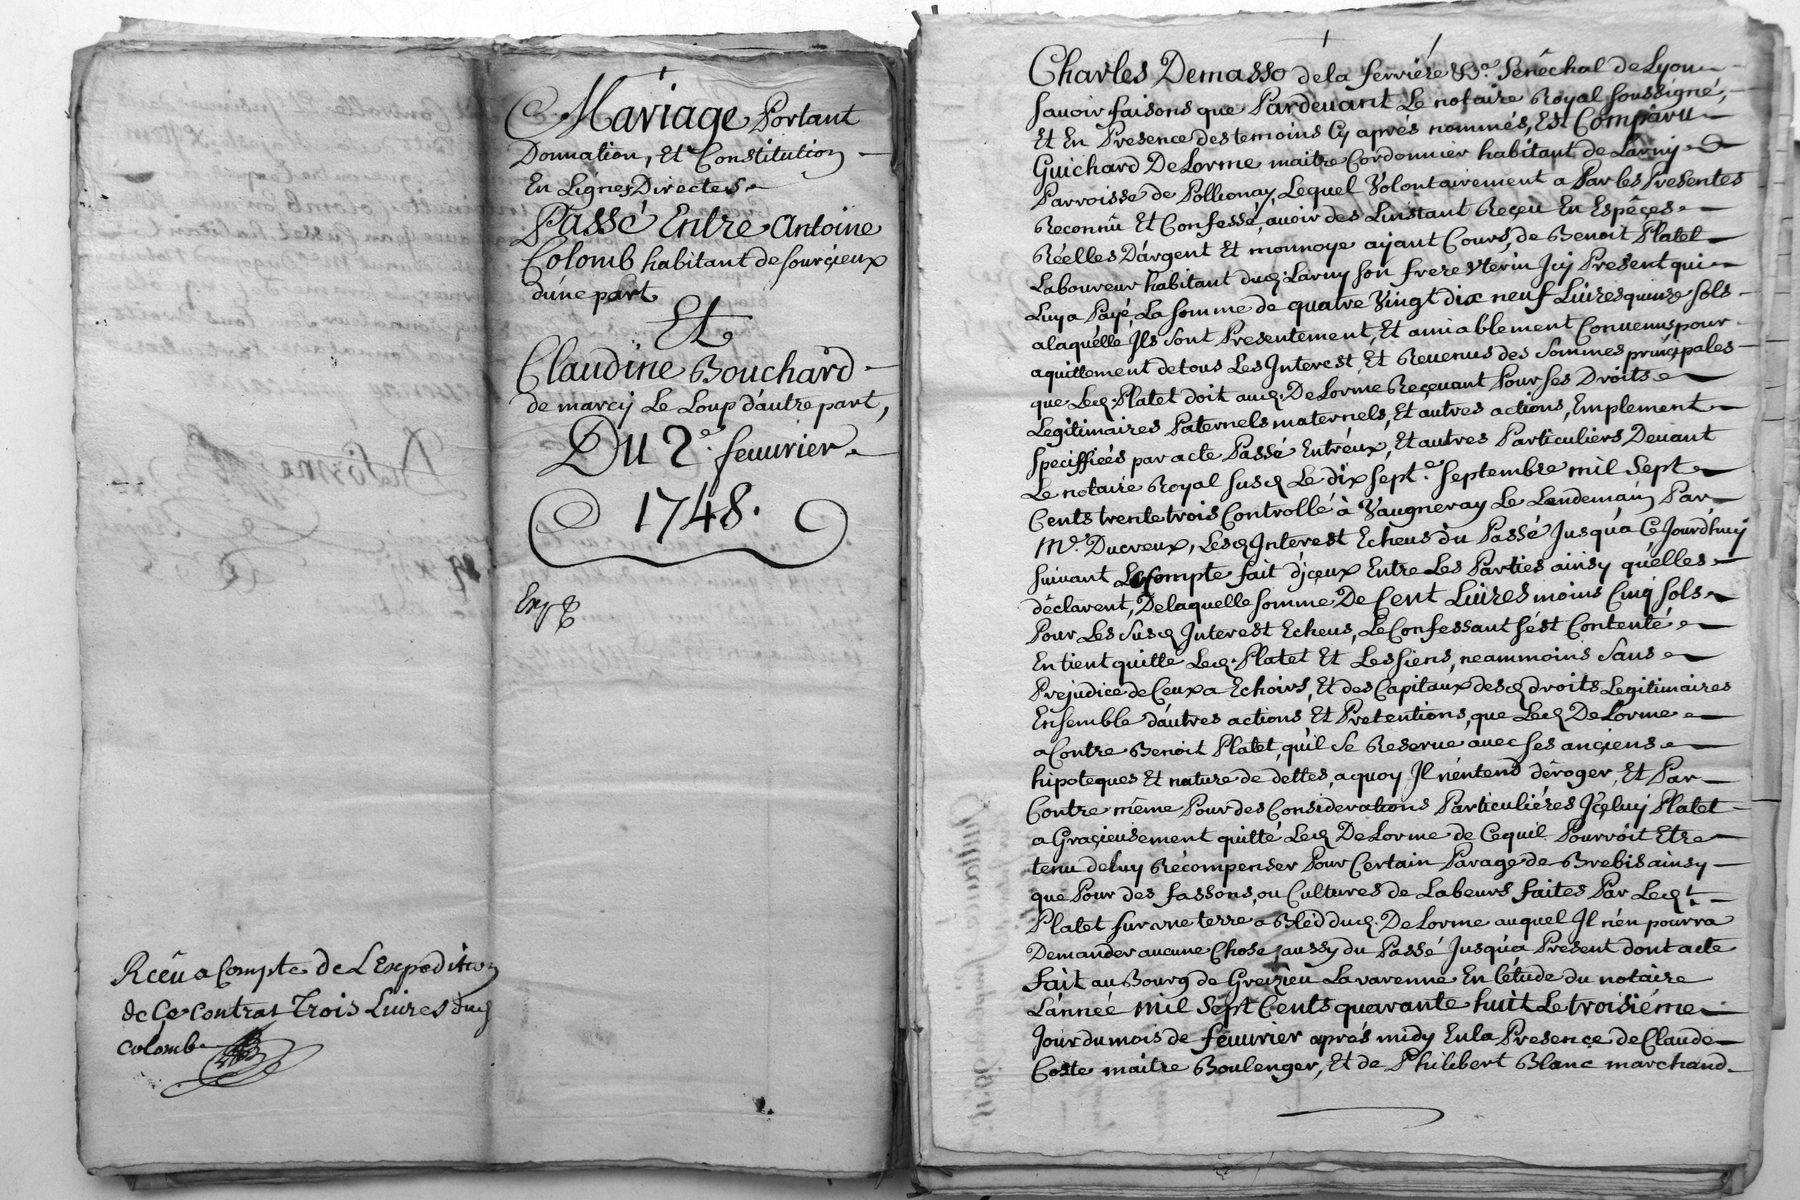 Mariage Portant
Donnation, Et Constitution
En Lignes Directes
Passé Entre Antoine
Colomb habitant de sourçieux
dúne part
Et
Claudine Bouchard
de marcÿ Le Loup d'autre part,
Du 2e. feuurier
1748.
Reçû a Compte de L'Expedition
de Ce Contrat Trois Liures dud
Colomb
Charles Demasso dela ferriére &a. Senêchal de Lyon
sauoir faisons que Pardeuant Le notaire Royal soussigné,
Et En Presence des temoins Cy aprés nommés, Est Comparu
Guichard DeLorme maitre Cordonnier habitant de Larny
Parroisse de Pollionay, Lequel Volontairement a Par les Presentes
Reconnû Et Confessé, auoir des Linstant Reçeu En Espêçes
Réelles D'argent Et monnoye aÿant Cours, de Benoit Platet
Laboureur habitant dud. Larny son frere Vterin Jcÿ Present qui
Luy a Payé, La somme de quatre Vingt dix neuf Liures quinze sols
alaquélle Jls sont Presentement, Et amiablement Conuenus pour
aquittement de tous Les Interest, Et Reuenus des Sommes prinçipales
que Led. Platet doit aud. DeLorme Reçeuant Pour ses Droits
Legitimaires Paternels maternels, Et autres actions, Emplement
speciffiées par acte Passé Entréux, Et autres Particuliers, Deuant
Le notaire Royal susd Le dix sept.e septembre mil sept
Cents trente trois Controllé à Vaugneray Le Lendemain Par
Me. Ducreux, Lesd Interest Echeus du Passé Jusqúa Ce Jourdhuÿ
suiuant Le Compte fait d'jçeux Entre Les Parties ainsy qúelles
déclarent, De laquelle somme De Cent Liures moins Cinq sols
Pour Les susd Interest Echeus, Le Confessant sést Contenté
En tient quitte Led. Platet Et Les siens, neammoins sans
Prejudice de Ceux a Echoirs, Et des Capitaux desd droits Legitimaires
Ensemble dáutres actions Et Pretentions, que Led DeLorme
a Contre Benoit Platet, qúil se Reserue auec ses ançiens
hipoteques Et nature de dettes, a quoy Jl n'éntend déroger, Et Par
Contre même Pour des Considerations Particuliéres Jçeluÿ Platet
a Graçieusement quitté Led DeLorme de Cequil Pourroit Etre
tenu de luy Récompenser Pour Certain Parage de Brebis ainsy
que Pour des fassons, ou Cultures de Labeurs faites Par Led.t
Platet sur vne terre a Bled dud. DeLorme auquel Jl n'en pourra
Demander aucune Chose, aussy du Passé Jusqúa Present dont acte
fait au Bourg de Greizieu Lauarenne En L'étude du notaire
L'année mil sept Cents quarante huit Le troisiéme
Jour du mois de feuurier aprés midy En la Presençe de Claude
Coste maitre Boulenger, Et de Philibert Blanc marchand